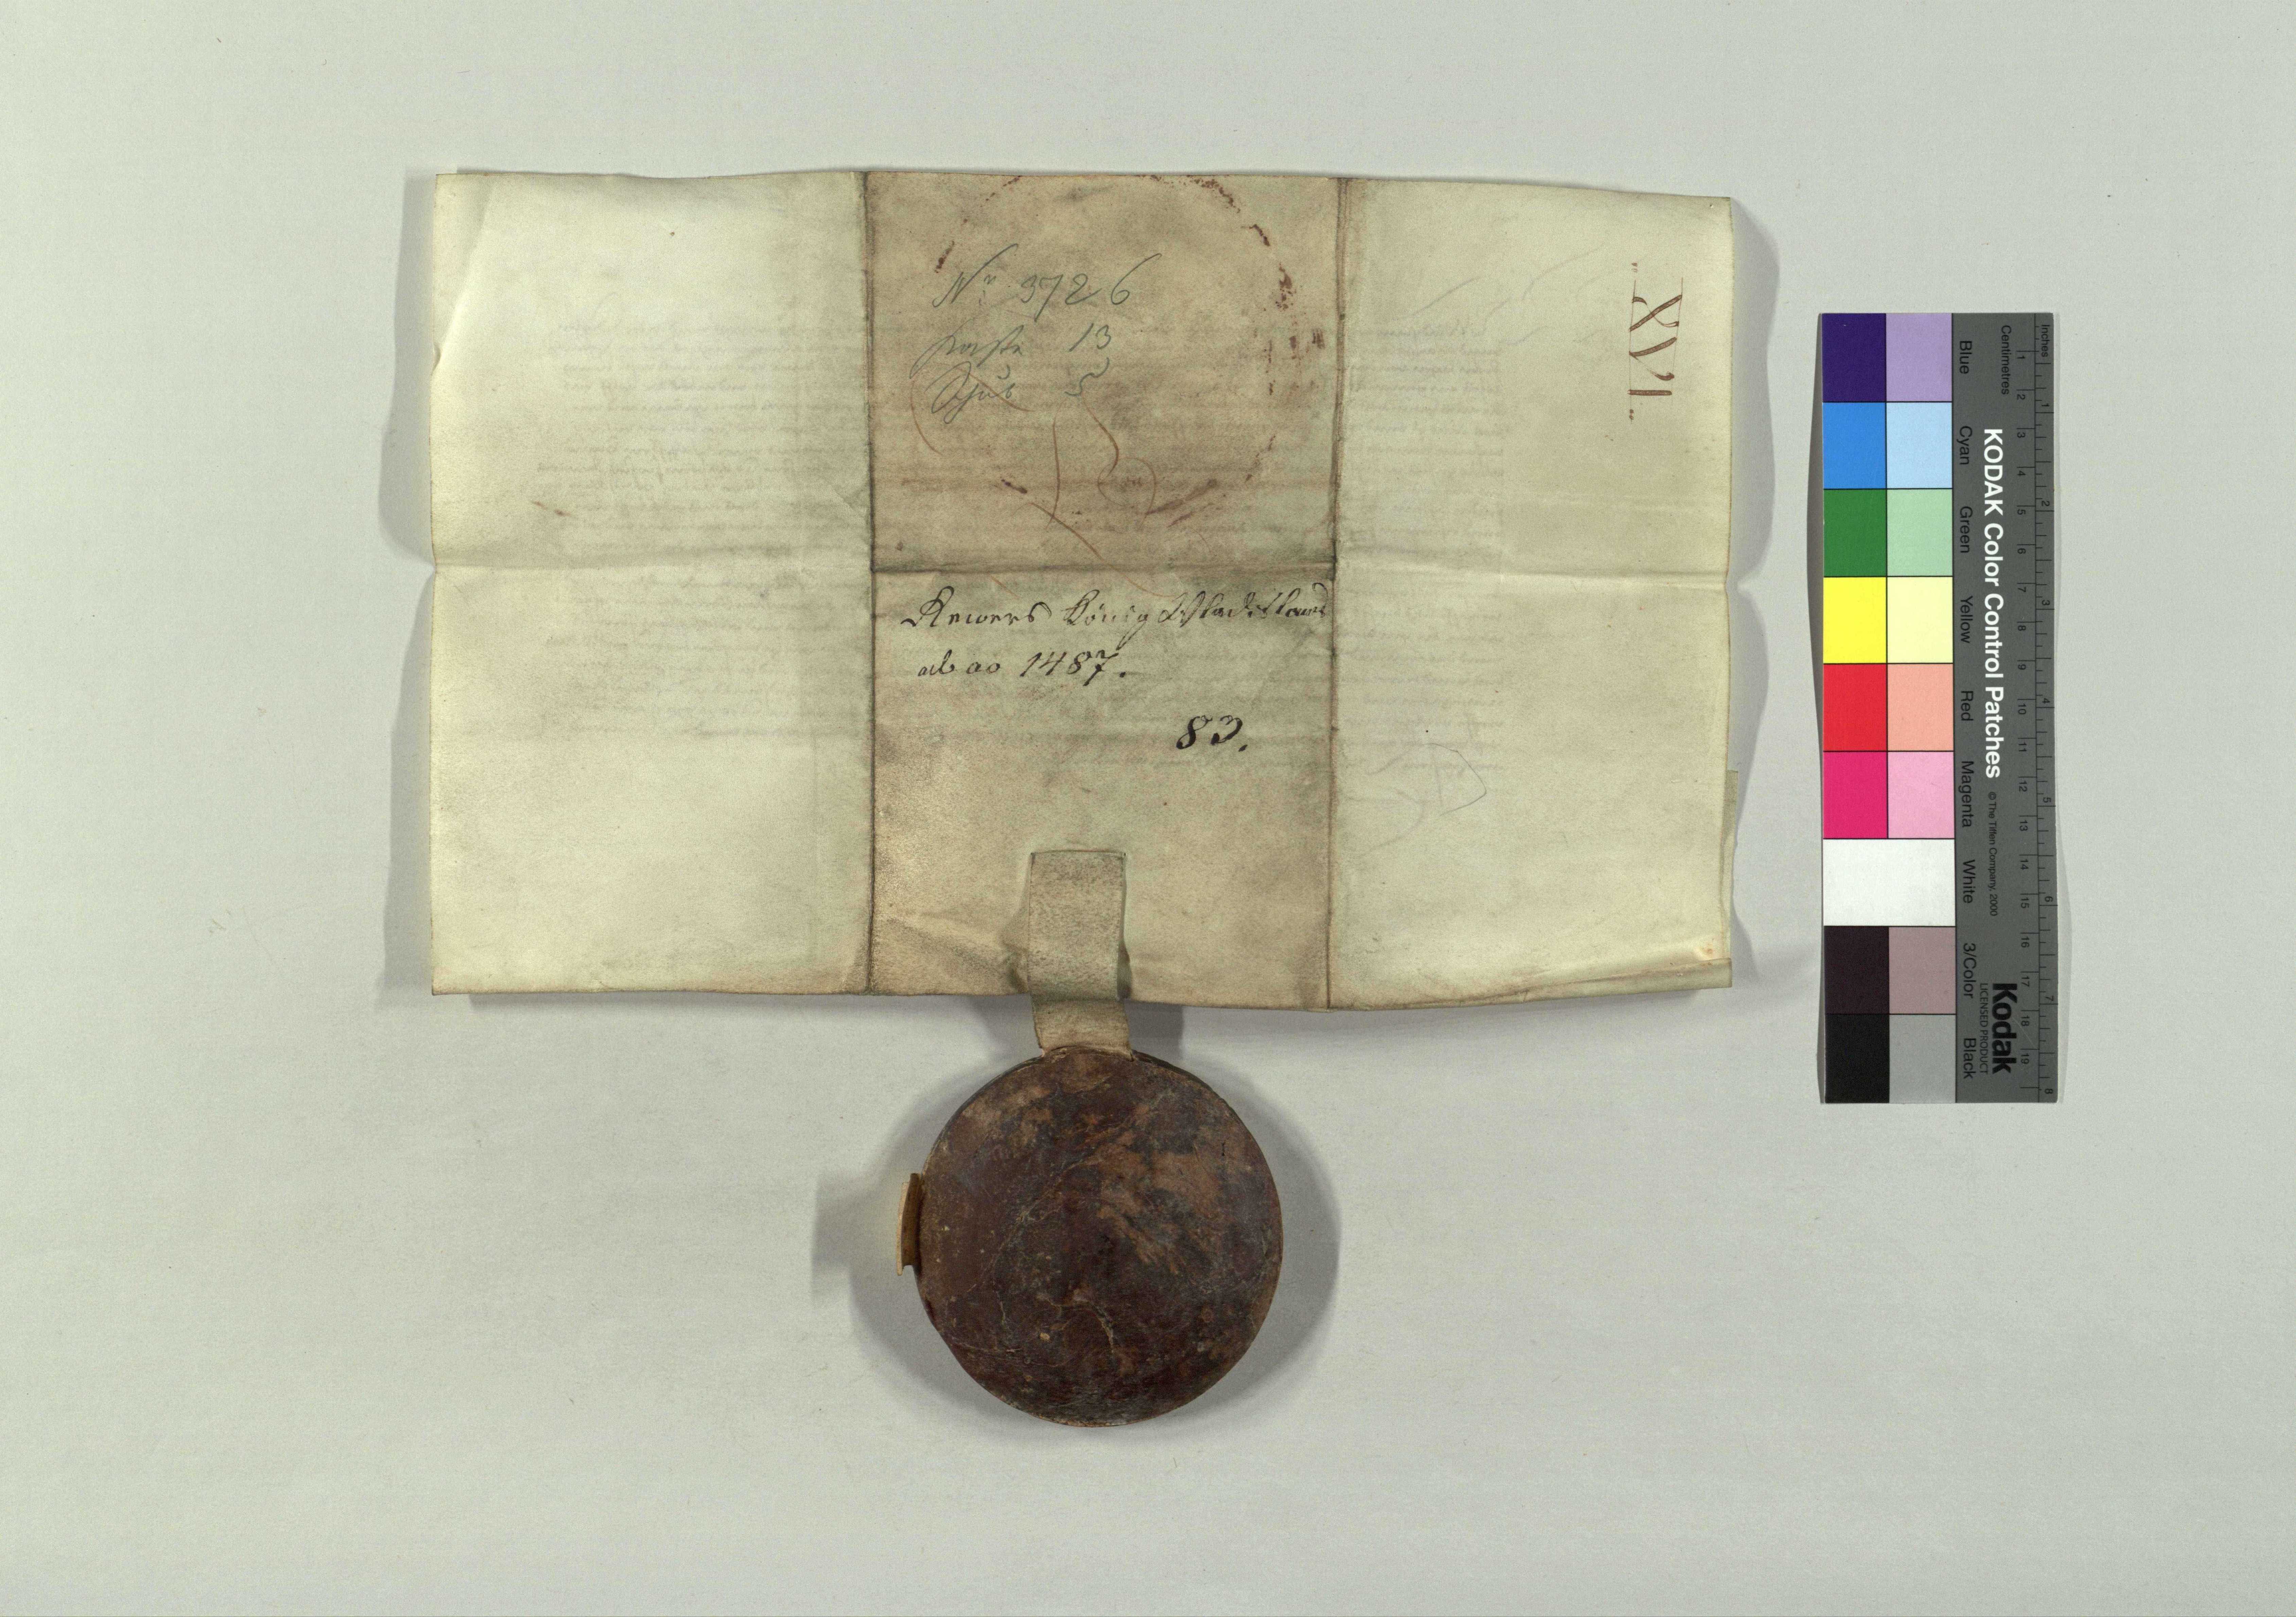 Nr 3726
Kaste 13
Schub 5
XVI.
Rewers König Wladislaus
ab ao 1487.
83.
KODAK Color Control Patches
© The Tiffen Company, 2000
Kodak
LICENSED PRODUCT
Inches
1 2 3 4 5 6 7 8
Centimetres
1 2 3 4 5 6 7 8 9 10 11 12 13 14 15 16 17 18 19
Blue
Cyan
Green
Yellow
Red
Magenta
White
3/Color
Black